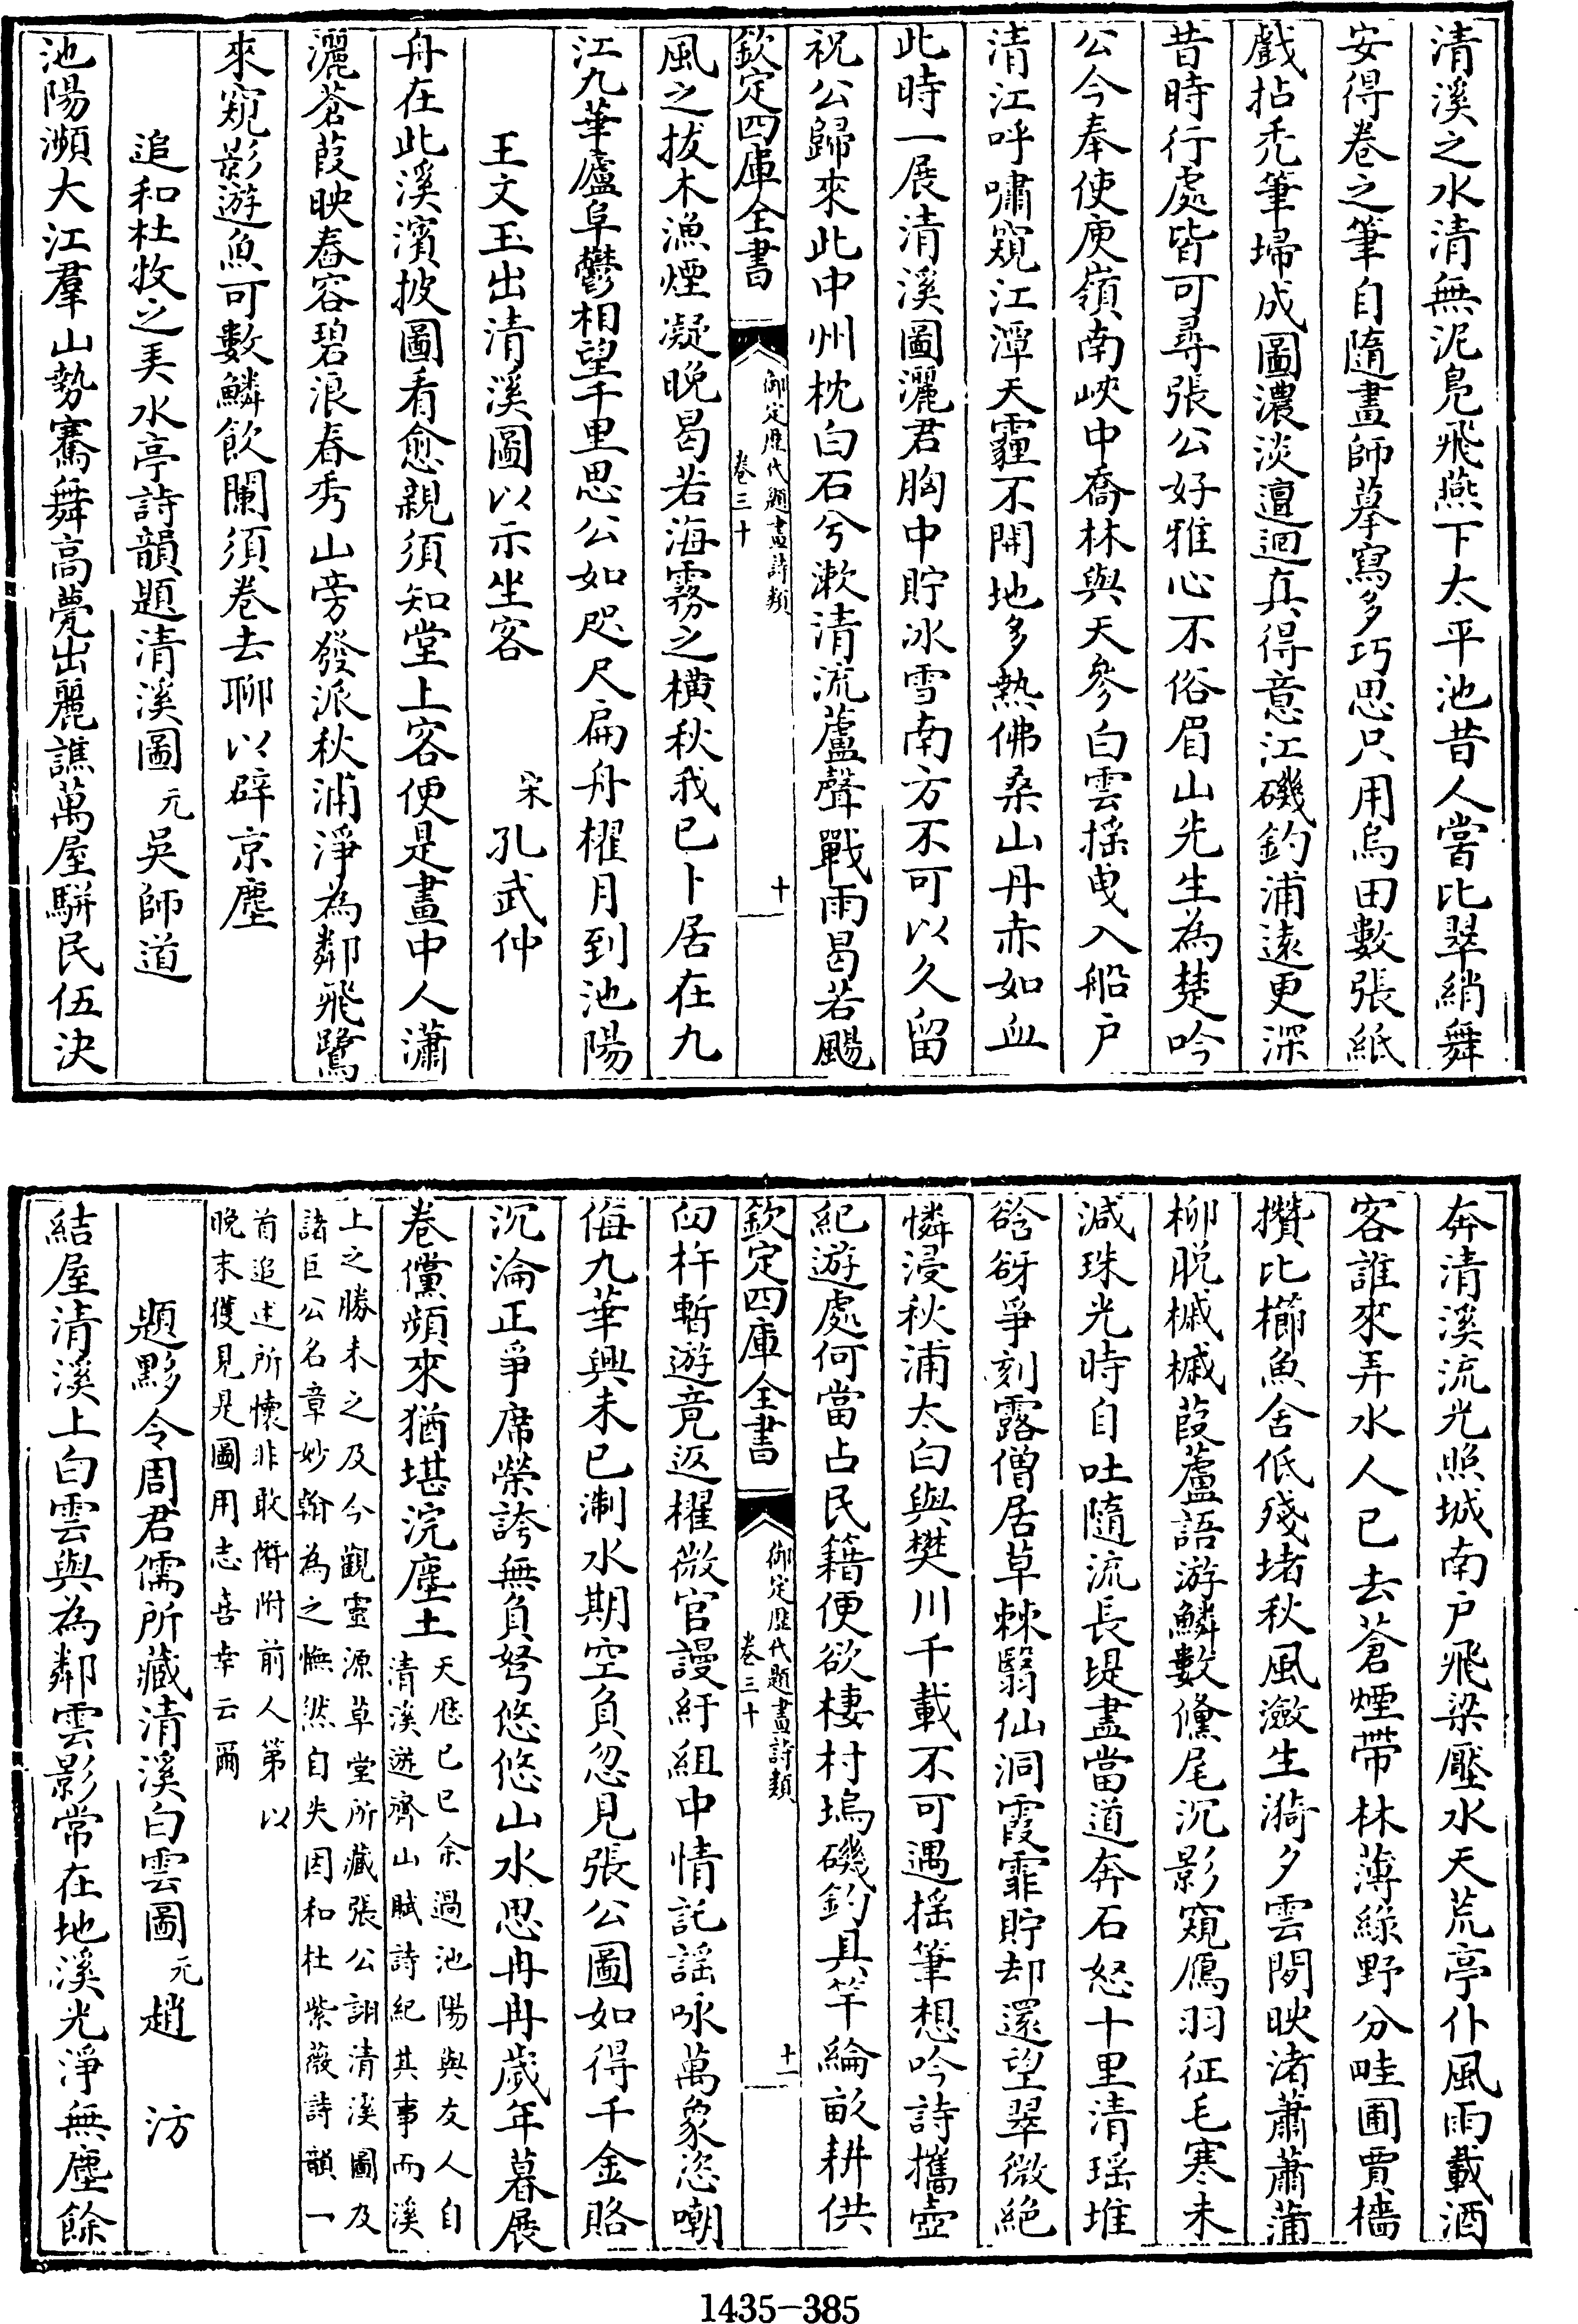 清溪之水清無泥鳧飛燕下太平池昔人嘗比翠綃舞
安得卷之筆自隨畫師摹寫多巧思只用烏田數張紙
戲拈禿筆埽成圖濃淡邅迴真得意江磯釣浦遠更深
昔時行處皆可尋張公好雅心不俗眉山先生為楚吟
公今奉使庾嶺南峽中喬林與天參白雲揺曵入船戶
清江呼嘯窺江潭天霾不開地多熱佛桑山丹赤如血
此時一展清溪圖灑君胸中貯冰雪南方不可以久留
祝公歸來此中州枕白石兮漱清流蘆聲戰雨曷若颺
欽定四庫全書
御定歴代題畫詩類
卷三十
十
風之拔木漁煙凝晚曷若海霧之橫秋我已卜居在九
江九華廬阜鬱相望千里思公如咫尺扁舟櫂月到池陽
王文玉出清溪圖以示坐客
宋孔武仲
舟在此溪濱披圖看愈親須知堂上客便是畫中人瀟
灑蒼葭映舂容碧浪春秀山旁發派秋浦淨為鄰飛鷺
來窺影遊魚可數鱗飲闌須卷去聊以辟京塵
追和杜牧之弄水亭詩韻題清溪圖
元吳師道
池陽瀕大江羣山勢騫舞高甍出麗譙萬屋駢民伍決
奔清溪流光照城南戶飛梁壓水天荒亭仆風雨載酒
客誰來弄水人已去蒼煙帶林薄綠野分畦圃賈檣
攢比櫛魚舍低殘堵秋風瀲生漪夕雲閒映渚蕭蕭蒲
柳脫槭槭葭蘆語游鱗數儵尾沉影窺鴈羽征毛寒未
減珠光時自吐隨流長堤盡當道奔石怒十里清瑶堆
谽谺爭刻露僧居草棘翳仙洞霞霏貯却還望翠微絕
憐浸秋浦太白與樊川千載不可遇揺筆想吟詩攜壺
紀遊處何當占民籍便欲棲村塢磯釣具竿綸畝耕供
欽定四庫全書
御定歴代題畫詩類
卷三十
十一
臼杵暫遊竟返櫂微官謾紆組中情託謡咏萬象恣嘲
侮九華興未已淛水期空負忽見張公圖如得千金賂
沉淪正爭席榮誇無負弩悠悠山水思冉冉歲年暮展
卷儻頻來猶堪浣塵土
天厯己巳余過池陽與友人自
清溪遊齊山賦詩紀其事而溪
上之勝未之及今觀靈源草堂所藏張公詡清溪圖及
諸巨公名章妙翰為之憮然自失因和杜紫薇詩韻一
首追述所懷非敢儕附前人第以
晚末獲見是圖用志喜幸云爾
題黟令周君儒所藏清溪白雲圖
元趙汸
結屋清溪上白雲與為鄰雲影常在地溪光淨無塵餘
1435-385